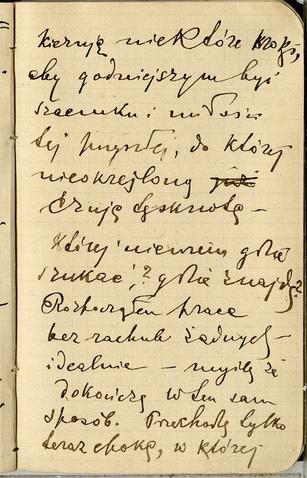 kieruję niektóre kroki,
aby godniejszym być
szacunku i miłości
tej przyszłej, do której
nieokreśloną już
Czuję tęsknotę –
Której niewiem gdzie
szukać,? gdzie znajdę?
Rozpocząłem pracę
bez rachub żadnych –
idealnie – myślę że
dokończę w ten sam
sposób. Przechodzę tylko
teraz epokę, w której